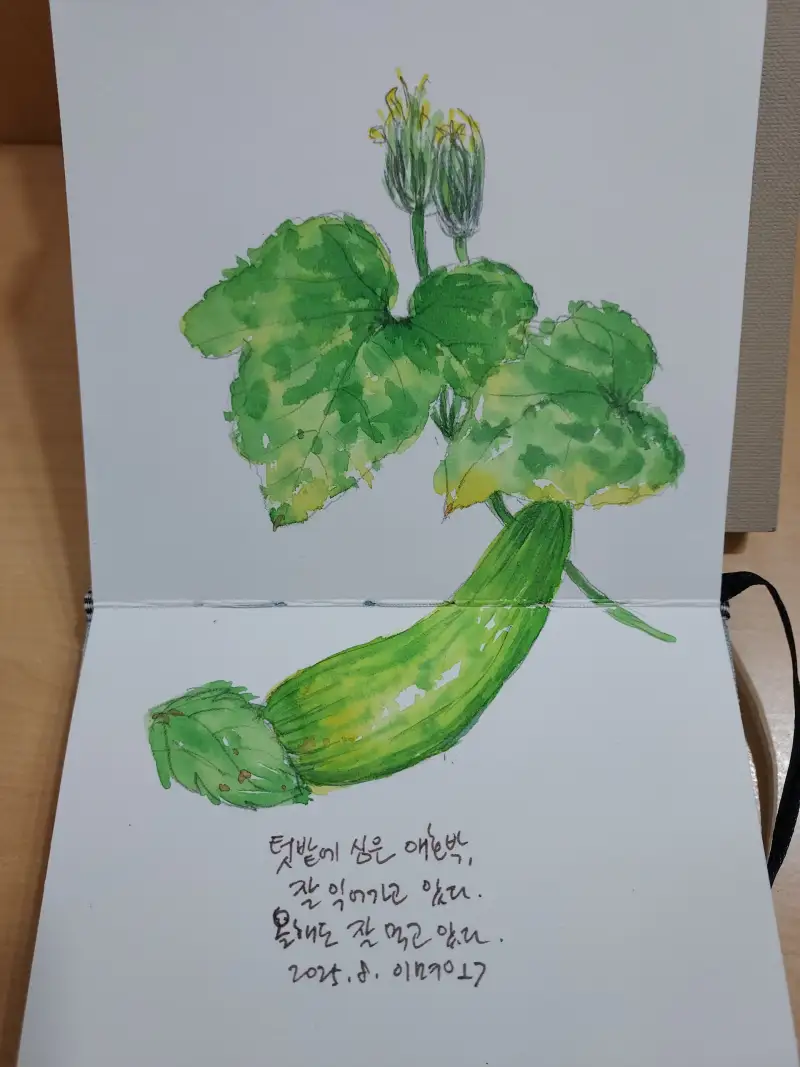 텃밭에 심은 애호박,
잘 익어가고 있다.
올해도 잘 먹고 있다.
2025. 8.